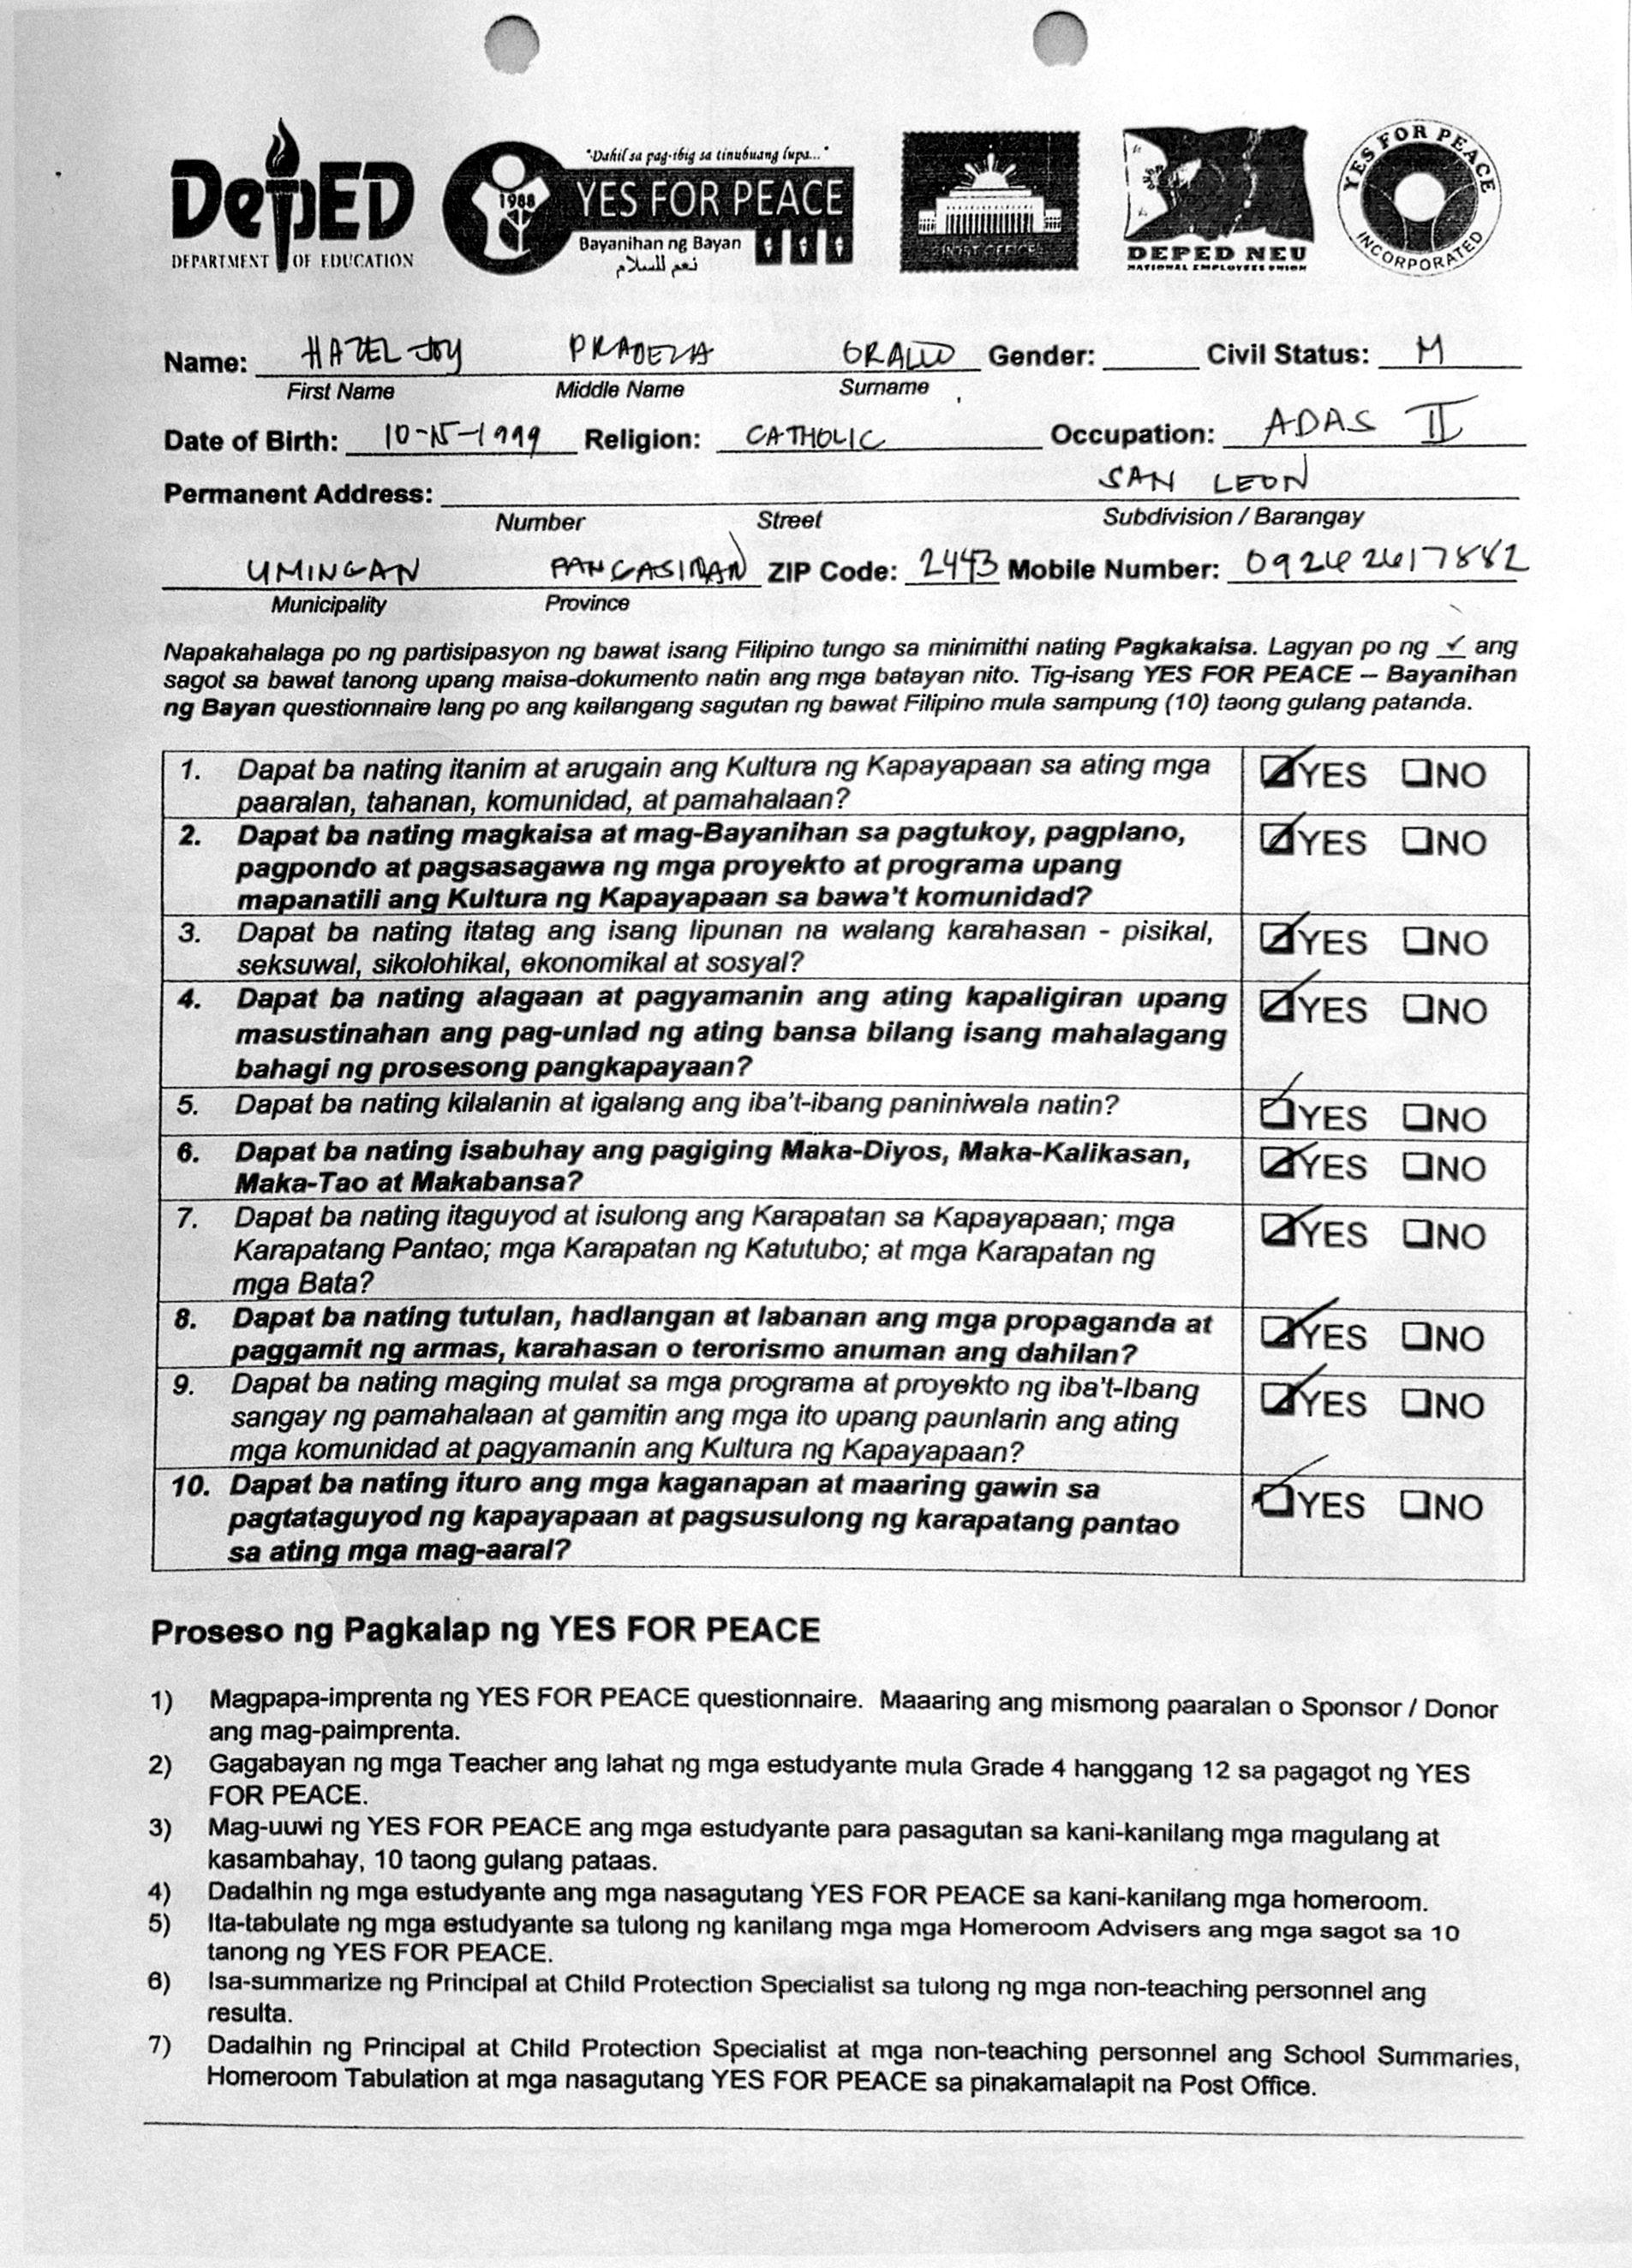 DepED
DEPARTMENT OF EDUCATION
"Dahil sa pag-ibig sa tinubuang lupa..."
1988
YES FOR PEACE
Bayanihan ng Bayan
نعم للسلام
POST OFFICE
DEPED NEU
NATIONAL EMPLOYEES UNION
YES FOR PEACE
INCORPORATED
Name: HAZEL JOY Gender: Civil Status: M
First Name Middle Name Surname
Date of Birth: 10-15-1999 Religion: CATHOLIC Occupation: ADAS II
Permanent Address: SAN LEON
Number Street Subdivision / Barangay
UMINGAN PANGASINAN ZIP Code: 2443 Mobile Number:
Municipality Province
Napakahalaga po ng partisipasyon ng bawat isang Filipino tungo sa minimithi nating Pagkakaisa. Lagyan po ng ✓ ang
sagot sa bawat tanong upang maisa-dokumento natin ang mga batayan nito. Tig-isang YES FOR PEACE – Bayanihan
ng Bayan questionnaire lang po ang kailangang sagutan ng bawat Filipino mula sampung (10) taong gulang patanda.
1. Dapat ba nating itanim at arugain ang Kultura ng Kapayapaan sa ating mga
paaralan, tahanan, komunidad, at pamahalaan?
YES NO
2. Dapat ba nating magkaisa at mag-Bayanihan sa pagtukoy, pagplano,
pagpondo at pagsasagawa ng mga proyekto at programa upang
mapanatili ang Kultura ng Kapayapaan sa bawa't komunidad?
YES NO
3. Dapat ba nating itatag ang isang lipunan na walang karahasan - pisikal,
seksuwal, sikolohikal, ekonomikal at sosyal?
YES NO
4. Dapat ba nating alagaan at pagyamanin ang ating kapaligiran upang
masustinahan ang pag-unlad ng ating bansa bilang isang mahalagang
bahagi ng prosesong pangkapayaan?
YES NO
5. Dapat ba nating kilalanin at igalang ang iba't-ibang paniniwala natin?
YES NO
6. Dapat ba nating isabuhay ang pagiging Maka-Diyos, Maka-Kalikasan,
Maka-Tao at Makabansa?
YES NO
7. Dapat ba nating itaguyod at isulong ang Karapatan sa Kapayapaan; mga
Karapatang Pantao; mga Karapatan ng Katutubo; at mga Karapatan ng
mga Bata?
YES NO
8. Dapat ba nating tutulan, hadlangan at labanan ang mga propaganda at
paggamit ng armas, karahasan o terorismo anuman ang dahilan?
YES NO
9. Dapat ba nating maging mulat sa mga programa at proyekto ng iba't-Ibang
sangay ng pamahalaan at gamitin ang mga ito upang paunlarin ang ating
mga komunidad at pagyamanin ang Kultura ng Kapayapaan?
YES NO
10. Dapat ba nating ituro ang mga kaganapan at maaring gawin sa
pagtataguyod ng kapayapaan at pagsusulong ng karapatang pantao
sa ating mga mag-aaral?
YES NO
Proseso ng Pagkalap ng YES FOR PEACE
1) Magpapa-imprenta ng YES FOR PEACE questionnaire. Maaaring ang mismong paaralan o Sponsor / Donor
ang mag-paimprenta.
2) Gagabayan ng mga Teacher ang lahat ng mga estudyante mula Grade 4 hanggang 12 sa pagagot ng YES
FOR PEACE.
3) Mag-uuwi ng YES FOR PEACE ang mga estudyante para pasagutan sa kani-kanilang mga magulang at
kasambahay, 10 taong gulang pataas.
4) Dadalhin ng mga estudyante ang mga nasagutang YES FOR PEACE sa kani-kanilang mga homeroom.
5) Ita-tabulate ng mga estudyante sa tulong ng kanilang mga mga Homeroom Advisers ang mga sagot sa 10
tanong ng YES FOR PEACE.
6) Isa-summarize ng Principal at Child Protection Specialist sa tulong ng mga non-teaching personnel ang
resulta.
7) Dadalhin ng Principal at Child Protection Specialist at mga non-teaching personnel ang School Summaries,
Homeroom Tabulation at mga nasagutang YES FOR PEACE sa pinakamalapit na Post Office.